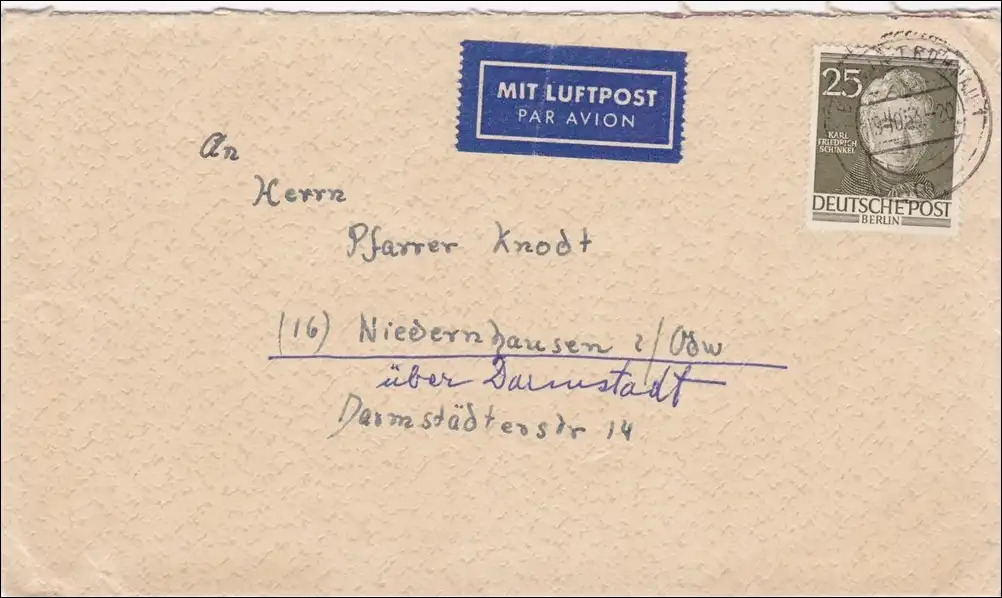 MIT LUFTPOST
PAR AVION
25
KARL
FRIEDRICH
SCHINKEL
DEUTSCHE POST
BERLIN
An
Herrn
Pfarrer Knodt
(16) Niedernhausen i/Odw
über Darmstadt
Darmstädterstr 14